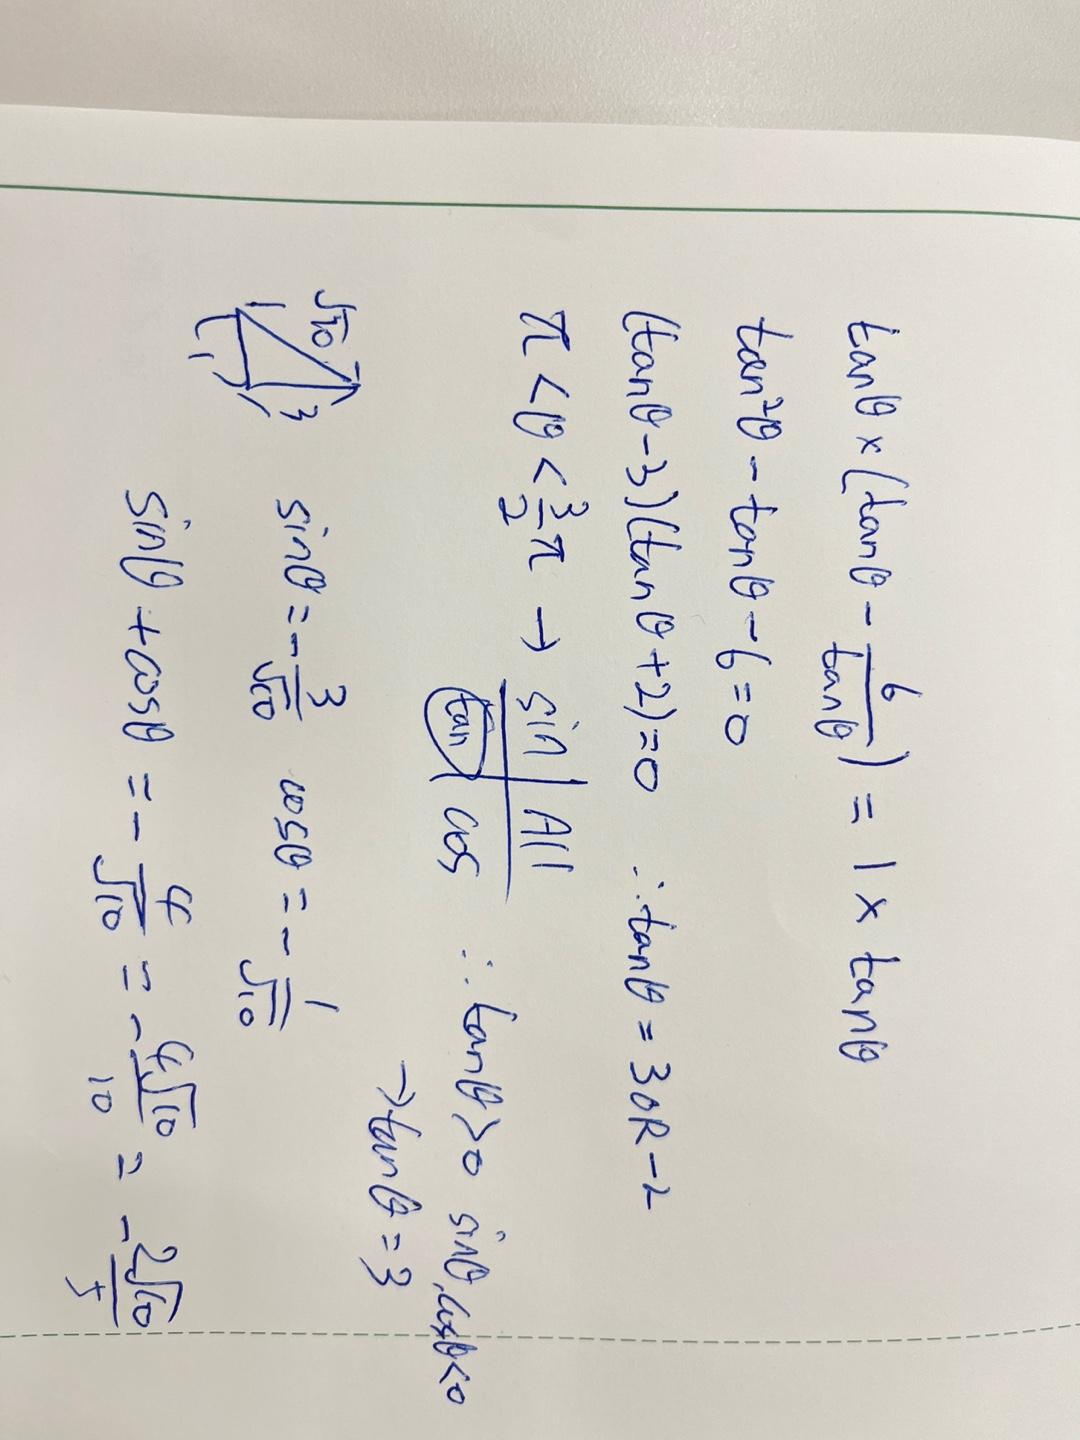 tanθ × (tanθ - 6/tanθ) = 1 × tanθ
tan²θ - tanθ - 6 = 0
(tanθ - 3)(tanθ + 2) = 0 ∴ tanθ = 3 OR -2
π < θ < 3/2 π → sin | All
tan | cos ∴ tanθ > 0 sinθ, cosθ < 0
→ tanθ = 3
√10 3 1 sinθ = - 3/√10 cosθ = - 1/√10
sinθ + cosθ = - 4/√10 = - 4√10/10 = - 2√10/5